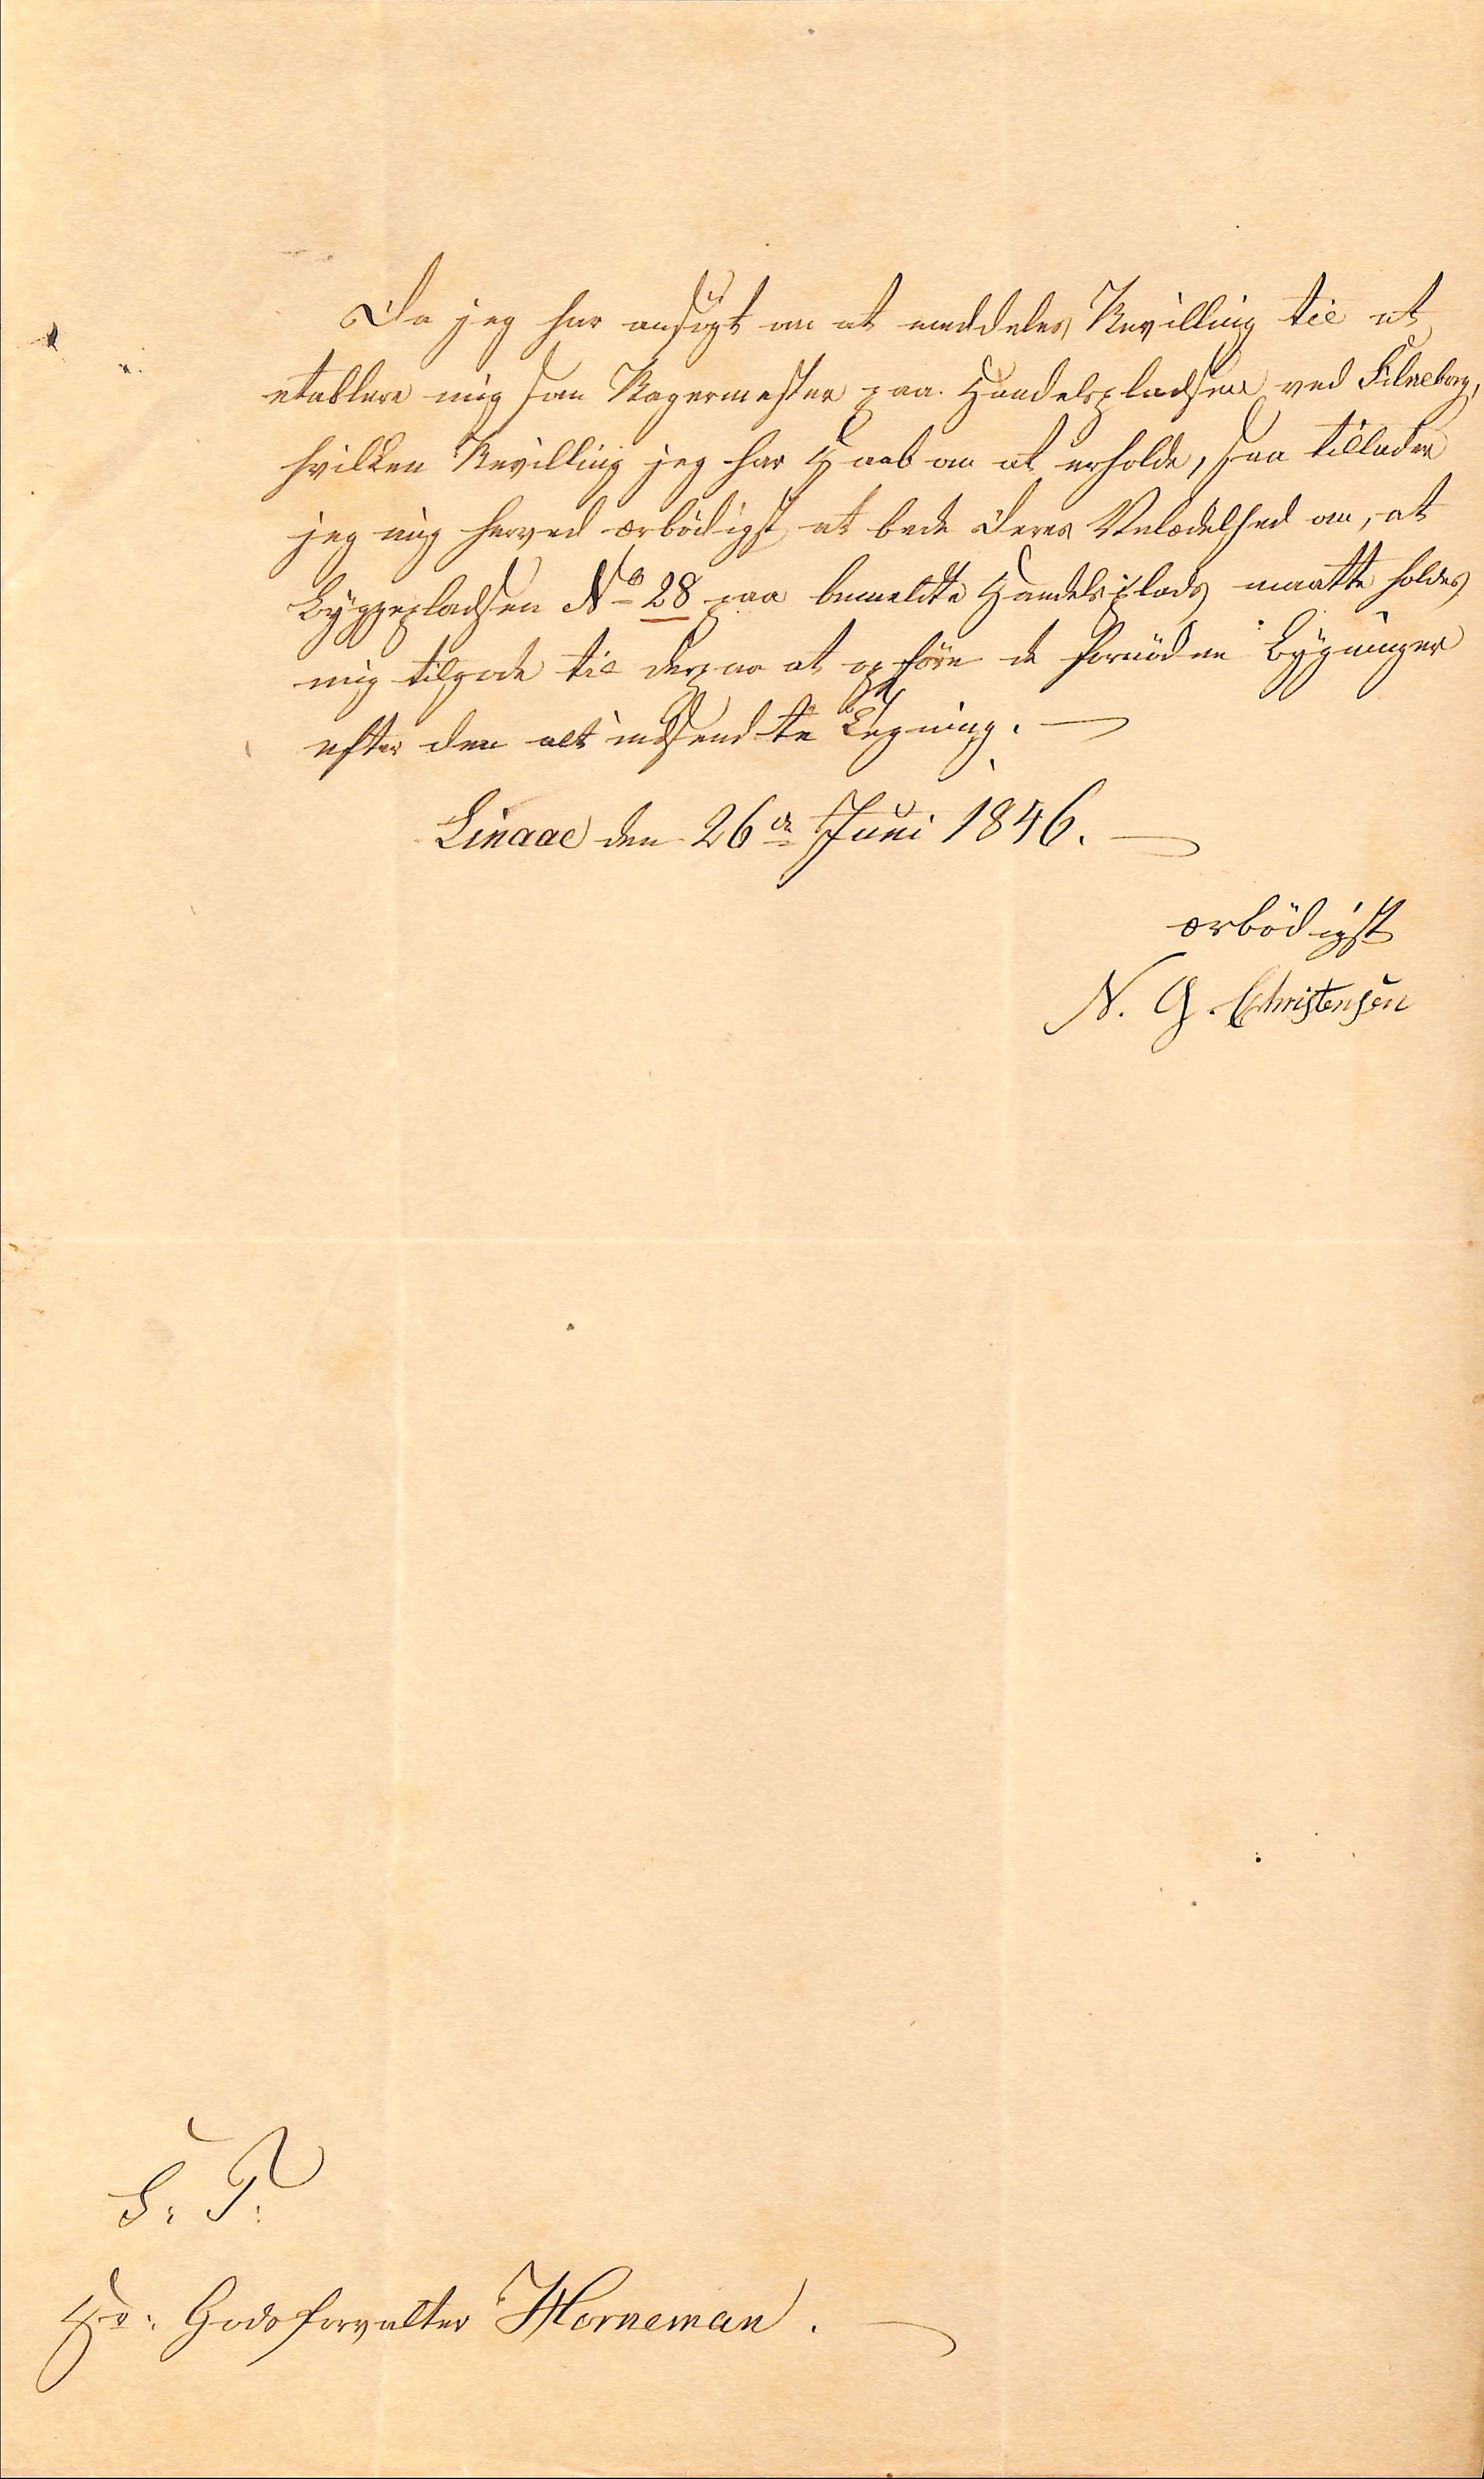 Da jeg har ansøgt om at meddeles Bevilling til at
etablere mig som Bagermester paa Handelspladsen ved Silkeborg,
hvilken Bevilling jeg har Haab om at erholde, saa tillader
jeg mig herved ærbödigst at bede Deres Velædelhed om, at
Byggepladsen No 28 paa bemeldte Handelsplads maatte holdes
mig tilgode til derpaa at opföre de fornödne Bygninger
efter den alt indsendte Tegning. —
Linaae den 26de Juni 1846. —
ærbödigst
N. G. Christensen
S: T:
Hr: Godsforvalter Horneman. —